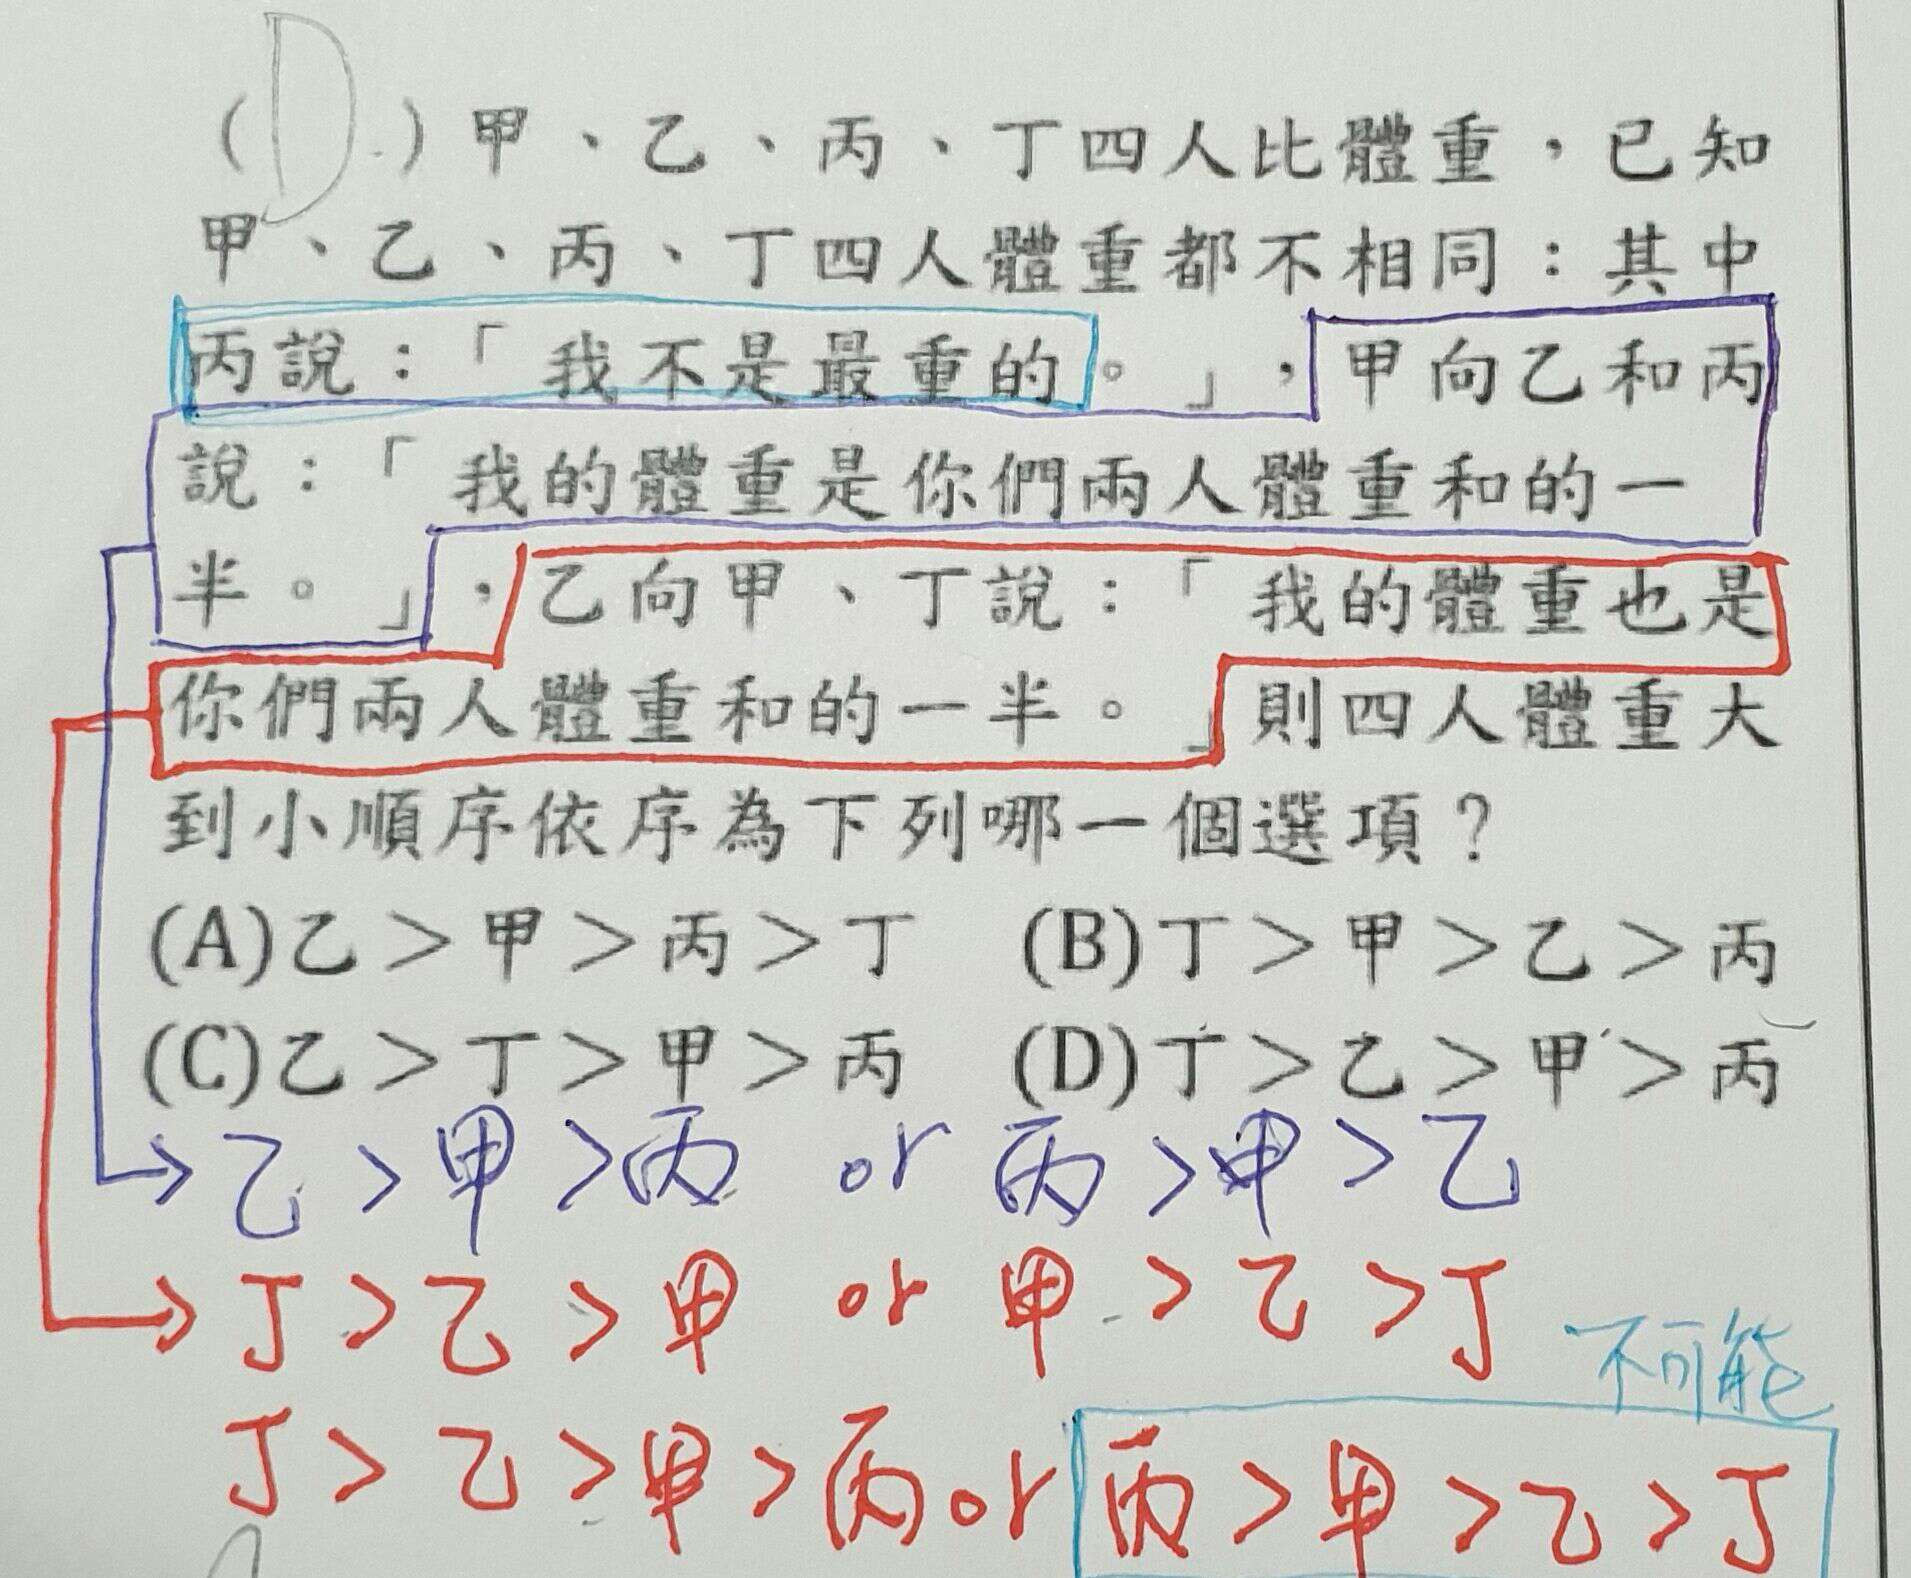 (D)甲、乙、丙、丁四人比體重，已知
甲、乙、丙、丁四人體重都不相同：其中
丙說：「我不是最重的。」，甲向乙和丙
說：「我的體重是你們兩人體重和的一
半。」，乙向甲、丁說：「我的體重也是
你們兩人體重和的一半。」則四人體重大
到小順序依序為下列哪一個選項？
(A)乙＞甲＞丙＞丁 (B)丁＞甲＞乙＞丙
(C)乙＞丁＞甲＞丙 (D)丁＞乙＞甲＞丙
乙＞甲＞丙 or 丙＞甲＞乙
丁＞乙＞甲 or 甲＞乙＞丁
不可能
丁＞乙＞甲＞丙 or 丙＞甲＞乙＞丁